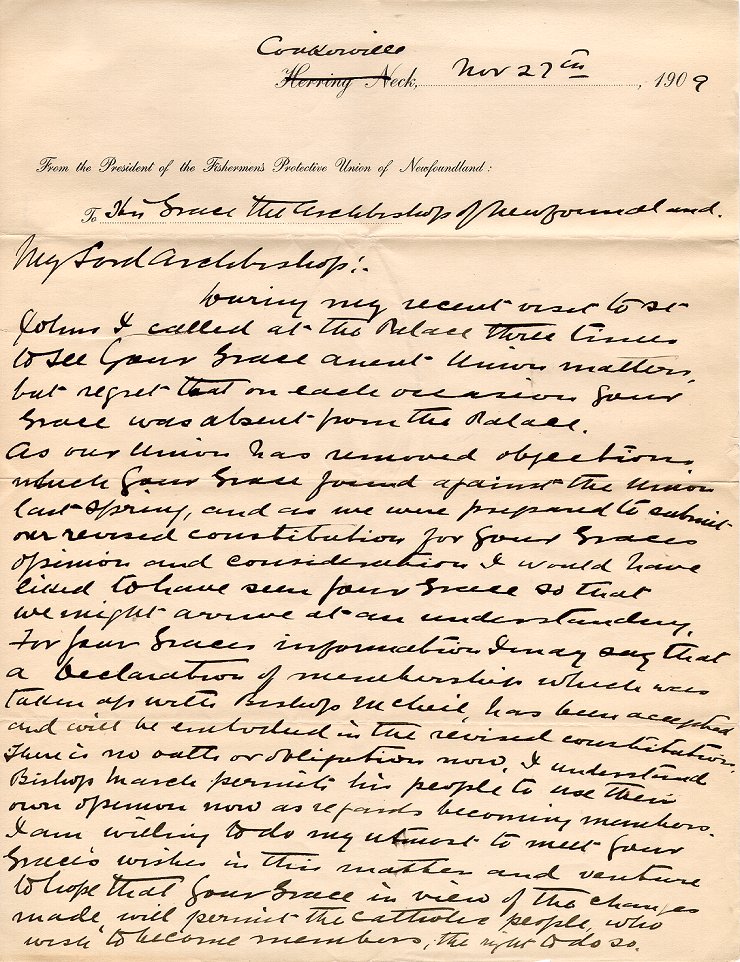 Coakerville
Herring Neck, Nov 27th, 1909
From the President of the Fishermen's Protective Union of Newfoundland:
To His Grace the Archbishop of Newfoundland.
My Lord Archbishop:-
During my recent visit to St
Johns I called at the Palace three times
to see Your Grace anent Union matters,
but regret that on each occasion Your
Grace was absent from the Palace.
As our Union has removed objections
which Your Grace found against the Union
last spring, and as we were prepared to submit
our revised constitution for Your Graces
opinion and consideration I would have
liked to have seen Your Grace so that
we might arrive at an understanding.
For Your Graces information I may say that
a Declaration of membership which was
taken up with Bishop McNeil, has been accepted
and will be embodied in the revised constitution.
There is no oath or obligation now. I understand
Bishop March permits his people to use their
own opinion now as regards becoming members.
I am willing to do my utmost to meet Your
Grace's wishes in this matter and venture
to hope that Your Grace in view of the changes
made, will permit the Catholic people, who
wish to become members, the right to do so.